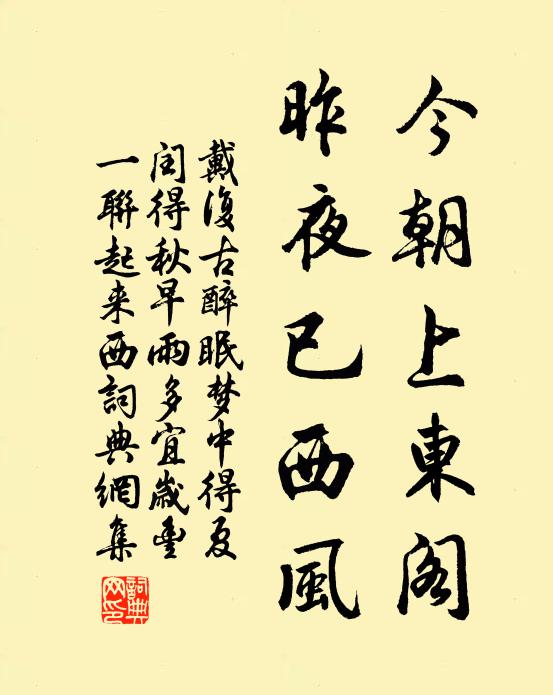 今朝上東阁
昨夜已西風
戴復古醉眠梦中得夏
闰得秋早雨多宜歲豊
一聯起来西詞典網集
詞典网印